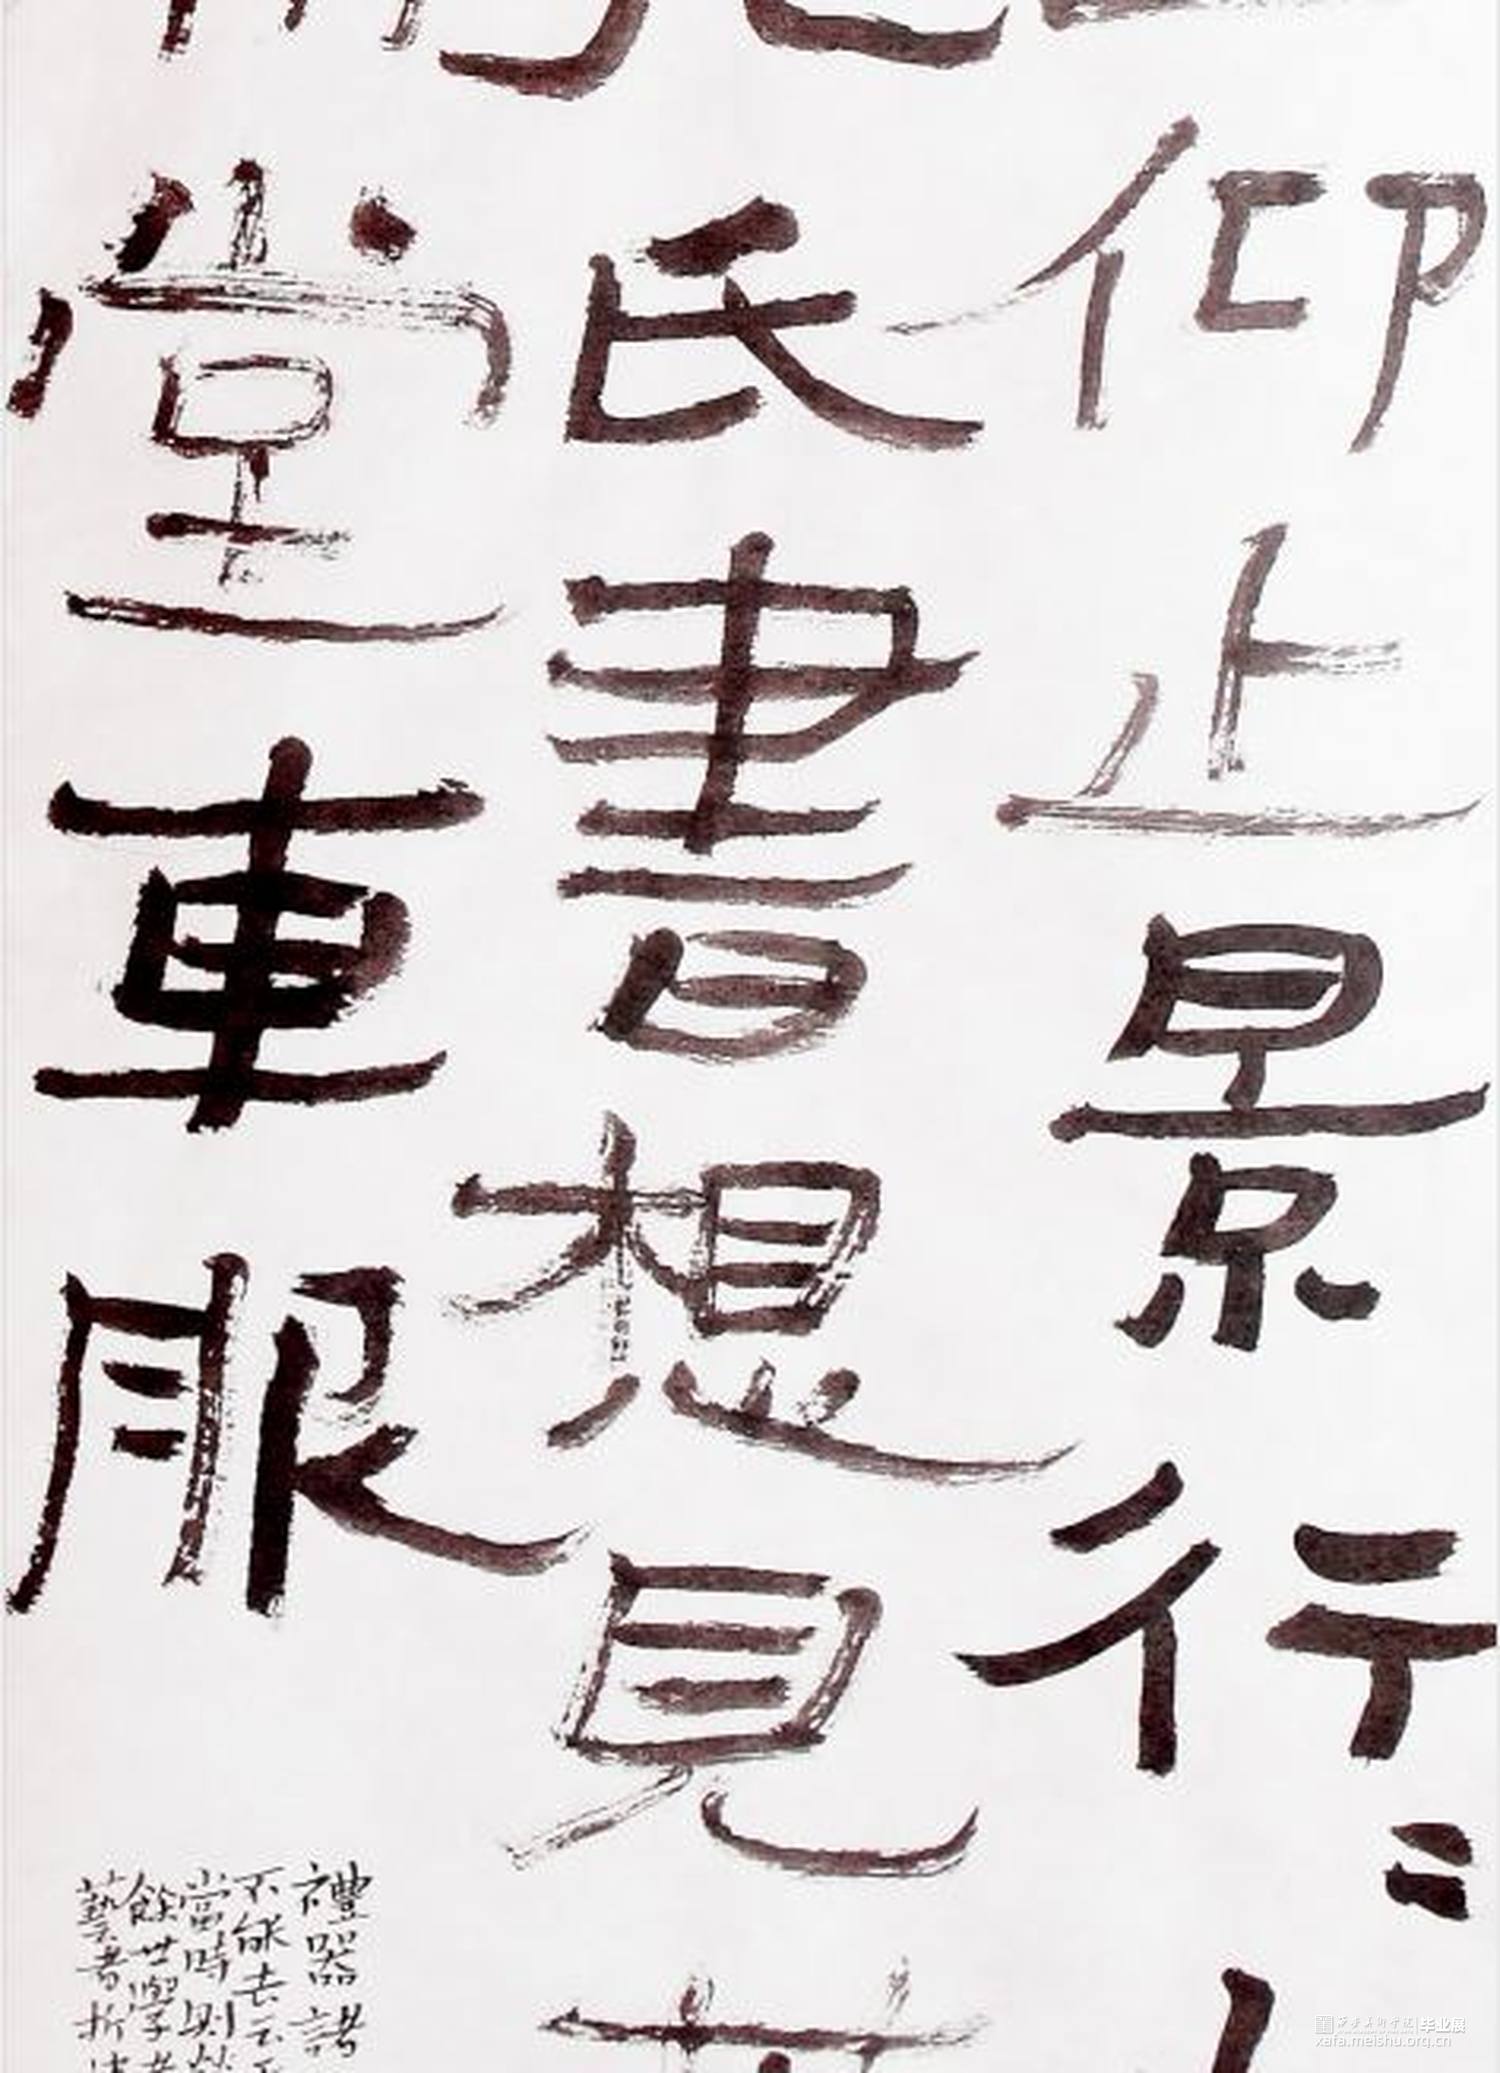 仰止景行〻
氏書想見
堂車服
禮器諸
不能去云
當時則
餘世學
藝者折
西安美术学院 毕业展
xafa.meishu.org.cn